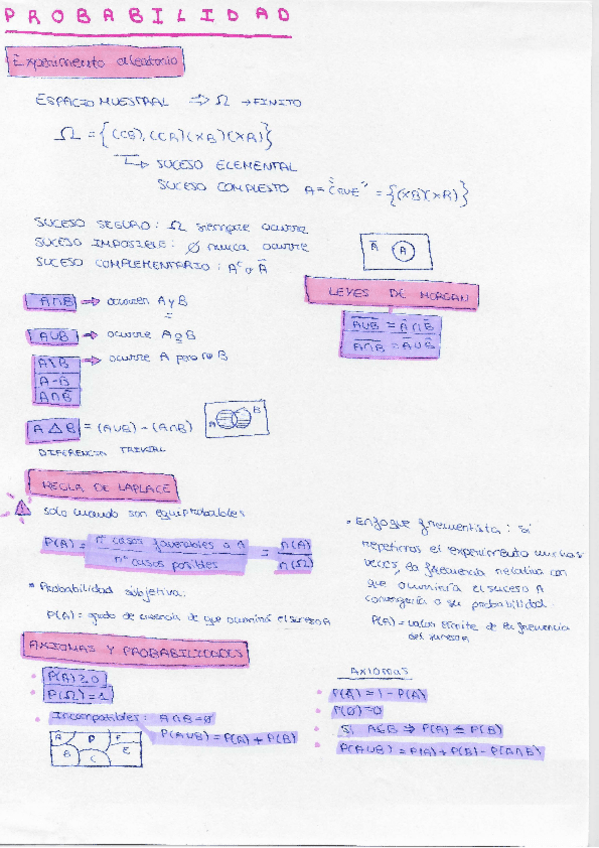 PROBABILIDAD
Experimento aleatorio
ESPACIO MUESTRAL ⇒ Ω → FINITO
Ω = {(CB), (CR) (XB) (XR)}
↳ SUCESO ELEMENTAL
SUCESO COMPUESTO A = "CRUE" = {(XB)(XR)}
SUCESO SEGURO: Ω siempre ocurre
SUCESO IMPOSIBLE: ∅ nunca ocurre
SUCESO COMPLEMENTARIO: Aᶜ o Ā
Ā A
LEYES DE MORGAN
A∪B̅ = Ā∩B̅
A∩B̅ = Ā∪B̅
A∩B → ocurren A y B
A∪B → ocurre A o B
A\B → ocurre A pero no B
A-B
A∩B̅
A △ B = (A∪B) - (A∩B)
A B
DIFERENCIA
REGLA DE LAPLACE
solo cuando son equiprobables
P(A) = nº casos favorables a A / nº casos posibles = n(A) / n(Ω)
* Probabilidad subjetiva:
P(A) = grado de creencia de que ocurrirá el suceso A
• Enfoque frecuentista: si
repetimos el experimento muchas
veces, la frecuencia relativa con
que ocurriría el suceso A
convergería a su probabilidad.
P(A) = valor límite de la frecuencia
del suceso A
AXIOMAS Y PROBABILIDADES
• P(A) ≥ 0
• P(Ω) = 1
• Incompatibles: A∩B = ∅
P(A∪B) = P(A) + P(B)
A D F
B C E
AXIOMAS
• P(Ā) = 1 - P(A)
• P(∅) = 0
• Si A⊆B ⇒ P(A) ≤ P(B)
• P(A∪B) = P(A) + P(B) - P(A∩B)